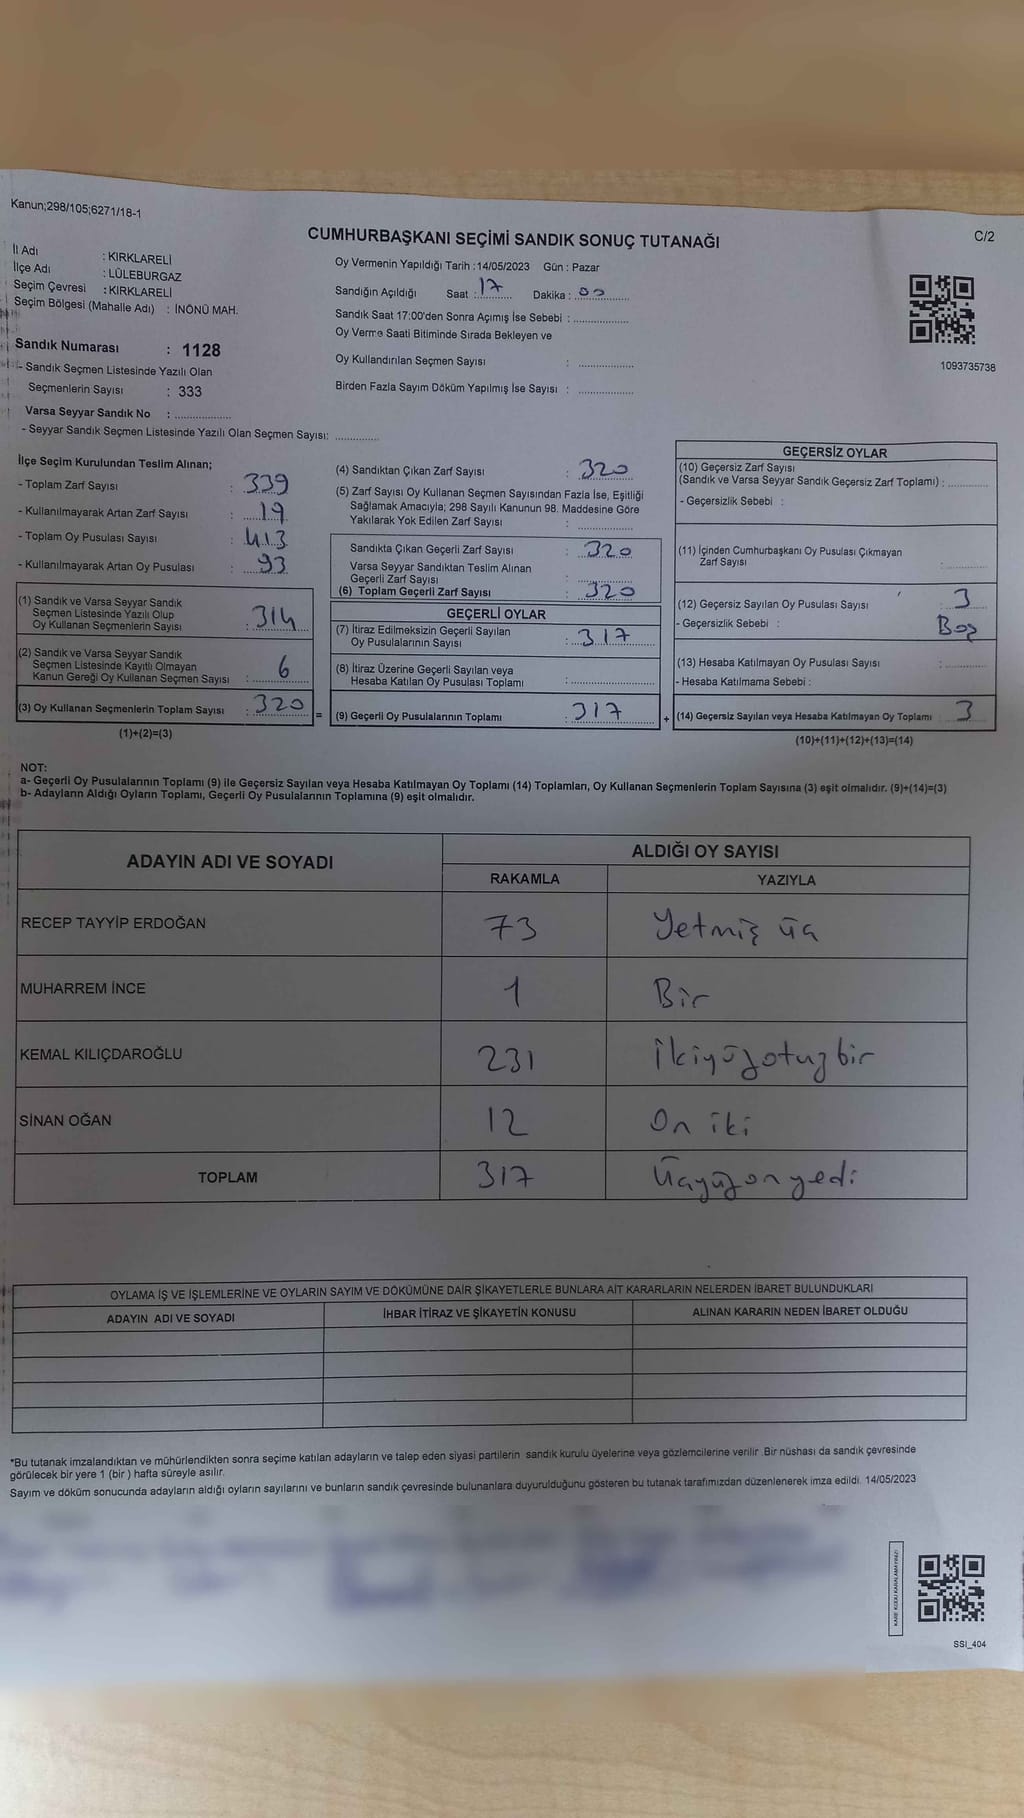 Kanun;298/105;6271/18-1
CUMHURBAŞKANI SEÇİMİ SANDIK SONUÇ TUTANAĞI
C/2
İl Adı : KIRKLARELİ
İlçe Adı : LÜLEBURGAZ
Seçim Çevresi : KIRKLARELİ
Seçim Bölgesi (Mahalle Adı) : İNÖNÜ MAH.
Sandık Numarası : 1128
- Sandık Seçmen Listesinde Yazılı Olan
Seçmenlerin Sayısı : 333
Varsa Seyyar Sandık No : ................
- Seyyar Sandık Seçmen Listesinde Yazılı Olan Seçmen Sayısı: ............
Oy Vermenin Yapıldığı Tarih :14/05/2023 Gün : Pazar
Sandığın Açıldığı Saat : 17 Dakika : 00
Sandık Saat 17:00'den Sonra Açımış İse Sebebi : ................
Oy Verme Saati Bitiminde Sırada Bekleyen ve
Oy Kullandırılan Seçmen Sayısı : ................
Birden Fazla Sayım Döküm Yapılmış İse Sayısı : ................
1093735738
İlçe Seçim Kurulundan Teslim Alınan;
- Toplam Zarf Sayısı : 339
- Kullanılmayarak Artan Zarf Sayısı : 19
- Toplam Oy Pusulası Sayısı : 413
- Kullanılmayarak Artan Oy Pusulası : 93
(1) Sandık ve Varsa Seyyar Sandık
Seçmen Listesinde Yazılı Olup
Oy Kullanan Seçmenlerin Sayısı : 314
(2) Sandık ve Varsa Seyyar Sandık
Seçmen Listesinde Kayıtlı Olmayan
Kanun Gereği Oy Kullanan Seçmen Sayısı : 6
(3) Oy Kullanan Seçmenlerin Toplam Sayısı : 320 =
(1)+(2)=(3)
(4) Sandıktan Çıkan Zarf Sayısı : 320
(5) Zarf Sayısı Oy Kullanan Seçmen Sayısından Fazla İse, Eşitliği
Sağlamak Amacıyla; 298 Sayılı Kanunun 98. Maddesine Göre
Yakılarak Yok Edilen Zarf Sayısı : ................
Sandıkta Çıkan Geçerli Zarf Sayısı : 320
Varsa Seyyar Sandıktan Teslim Alınan
Geçerli Zarf Sayısı : ................
(6) Toplam Geçerli Zarf Sayısı : 320
GEÇERLİ OYLAR
(7) İtiraz Edilmeksizin Geçerli Sayılan
Oy Pusulalarının Sayısı : 317
(8) İtiraz Üzerine Geçerli Sayılan veya
Hesaba Katılan Oy Pusulası Toplamı : ................
(9) Geçerli Oy Pusulalarının Toplamı : 317 +
GEÇERSİZ OYLAR
(10) Geçersiz Zarf Sayısı
(Sandık ve Varsa Seyyar Sandık Geçersiz Zarf Toplamı) : ............
- Geçersizlik Sebebi :
(11) İçinden Cumhurbaşkanı Oy Pusulası Çıkmayan
Zarf Sayısı : ............
(12) Geçersiz Sayılan Oy Pusulası Sayısı : 3
- Geçersizlik Sebebi : Boş
(13) Hesaba Katılmayan Oy Pusulası Sayısı : ............
- Hesaba Katılmama Sebebi :
(14) Geçersiz Sayılan veya Hesaba Katılmayan Oy Toplamı : 3
(10)+(11)+(12)+(13)=(14)
NOT:
a- Geçerli Oy Pusulalarının Toplamı (9) ile Geçersiz Sayılan veya Hesaba Katılmayan Oy Toplamı (14) Toplamları, Oy Kullanan Seçmenlerin Toplam Sayısına (3) eşit olmalıdır. (9)+(14)=(3)
b- Adayların Aldığı Oyların Toplamı, Geçerli Oy Pusulalarının Toplamına (9) eşit olmalıdır.
ADAYIN ADI VE SOYADI ALDIĞI OY SAYISI
RAKAMLA YAZIYLA
RECEP TAYYİP ERDOĞAN 73 Yetmiş üç
MUHARREM İNCE 1 Bir
KEMAL KILIÇDAROĞLU 231 İkiyüzotuzbir
SİNAN OĞAN 12 On iki
TOPLAM 317 Üçyüzonyedi
OYLAMA İŞ VE İŞLEMLERİNE VE OYLARIN SAYIM VE DÖKÜMÜNE DAİR ŞİKAYETLERLE BUNLARA AİT KARARLARIN NELERDEN İBARET BULUNDUKLARI
ADAYIN ADI VE SOYADI İHBAR İTİRAZ VE ŞİKAYETİN KONUSU ALINAN KARARIN NEDEN İBARET OLDUĞU
*Bu tutanak imzalandıktan ve mühürlendikten sonra seçime katılan adayların ve talep eden siyasi partilerin sandık kurulu üyelerine veya gözlemcilerine verilir .Bir nüshası da sandık çevresinde
görülecek bir yere 1 (bir ) hafta süreyle asılır.
Sayım ve döküm sonucunda adayların aldığı oyların sayılarını ve bunların sandık çevresinde bulunanlara duyurulduğunu gösteren bu tutanak tarafımızdan düzenlenerek imza edildi. 14/05/2023
KARE KODU KARALAMAYINIZ!
SSI_404